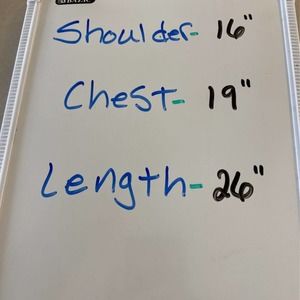 Shoulder- 16"
Chest- 19"
Length- 26"